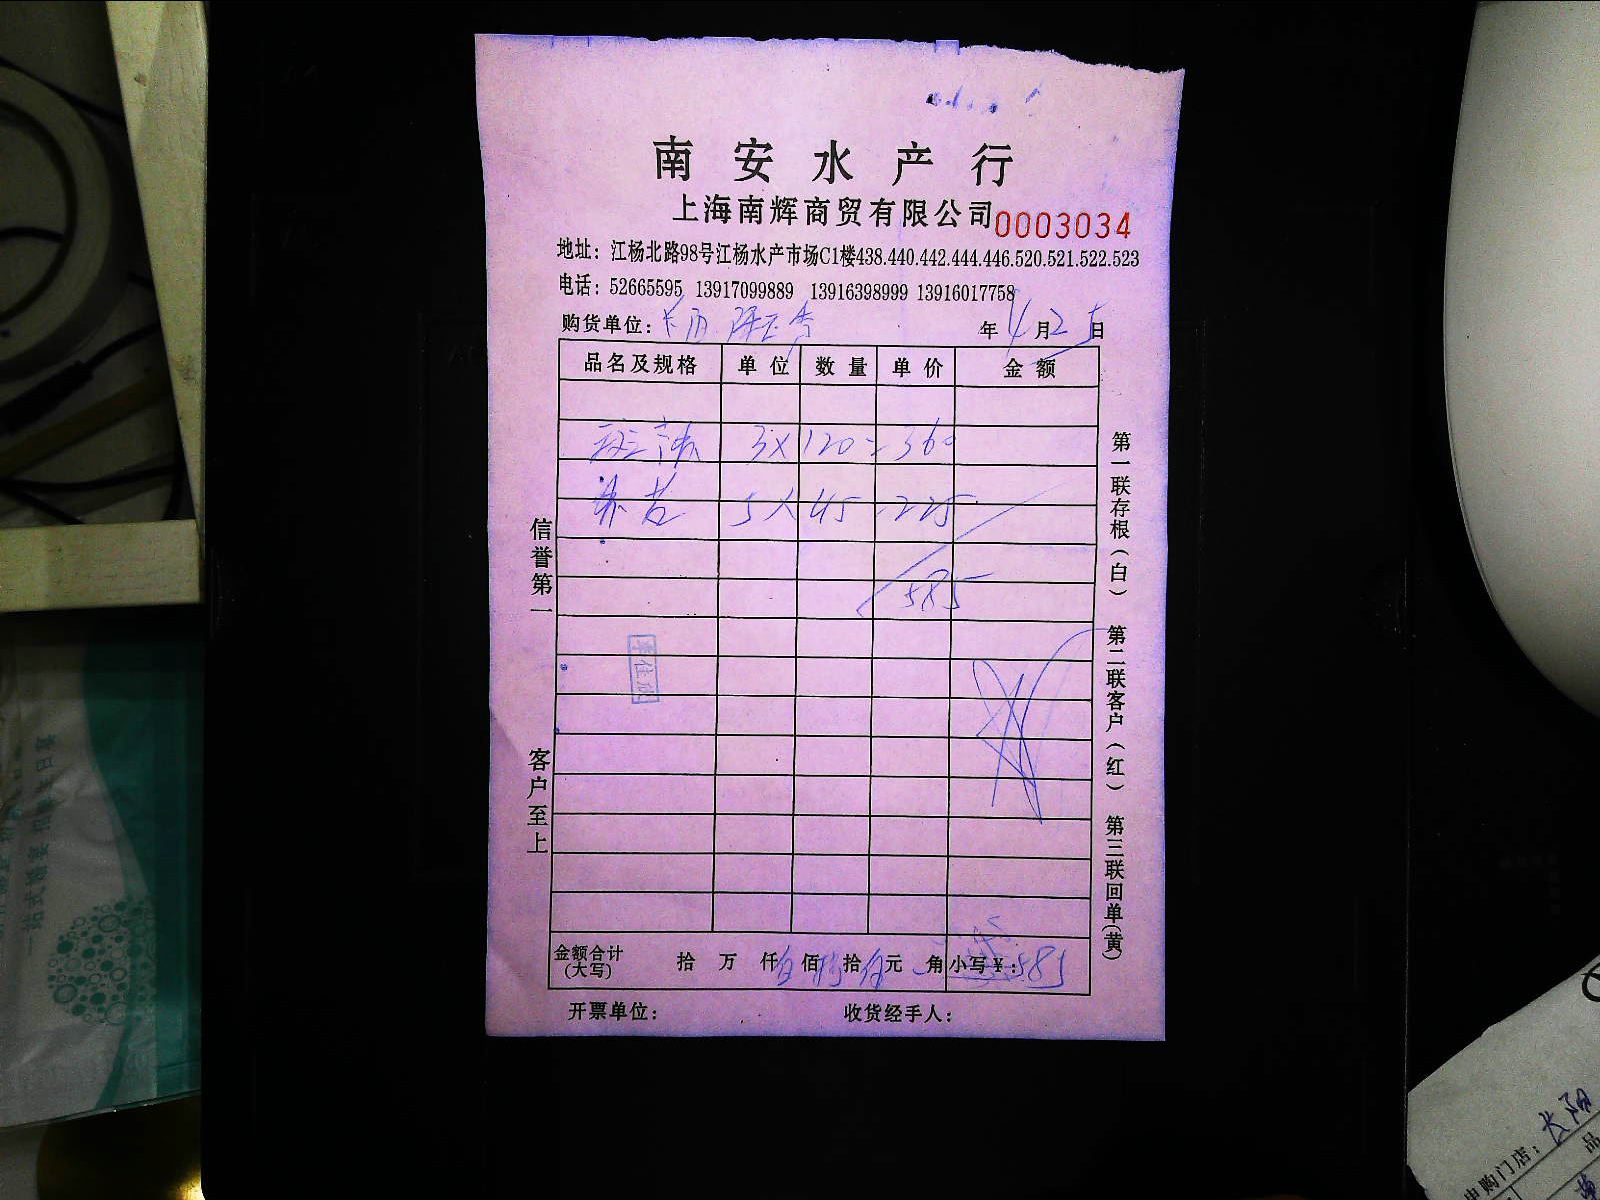 南安水产行
上海南辉商贸有限公司 0003034
地址：江杨北路98号江杨水产市场C1楼438.440.442.444.446.520.521.522.523
电话：52665595 13917099889 13916398999 13916017758
购货单位： 年 4月25日
品名及规格 单位 数量 单价 金额
3×120=360
5×45=225
585
信誉第一
客户至上
第一联存根（白） 第二联客户（红） 第三联回单（黄）
金额合计（大写） 拾 万 仟 伍佰 捌拾 伍元 角 小写￥：585
开票单位： 收货经手人：
申购门店：长阳
品